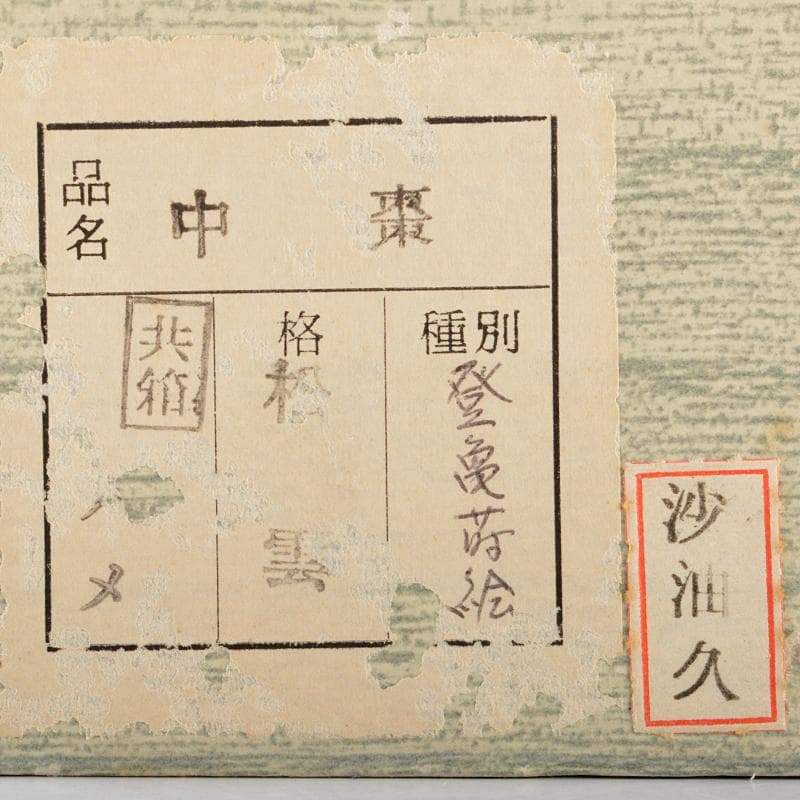 品名 中棗
種別
登亀蒔絵
格
松雲
共箱
メ
沙油久